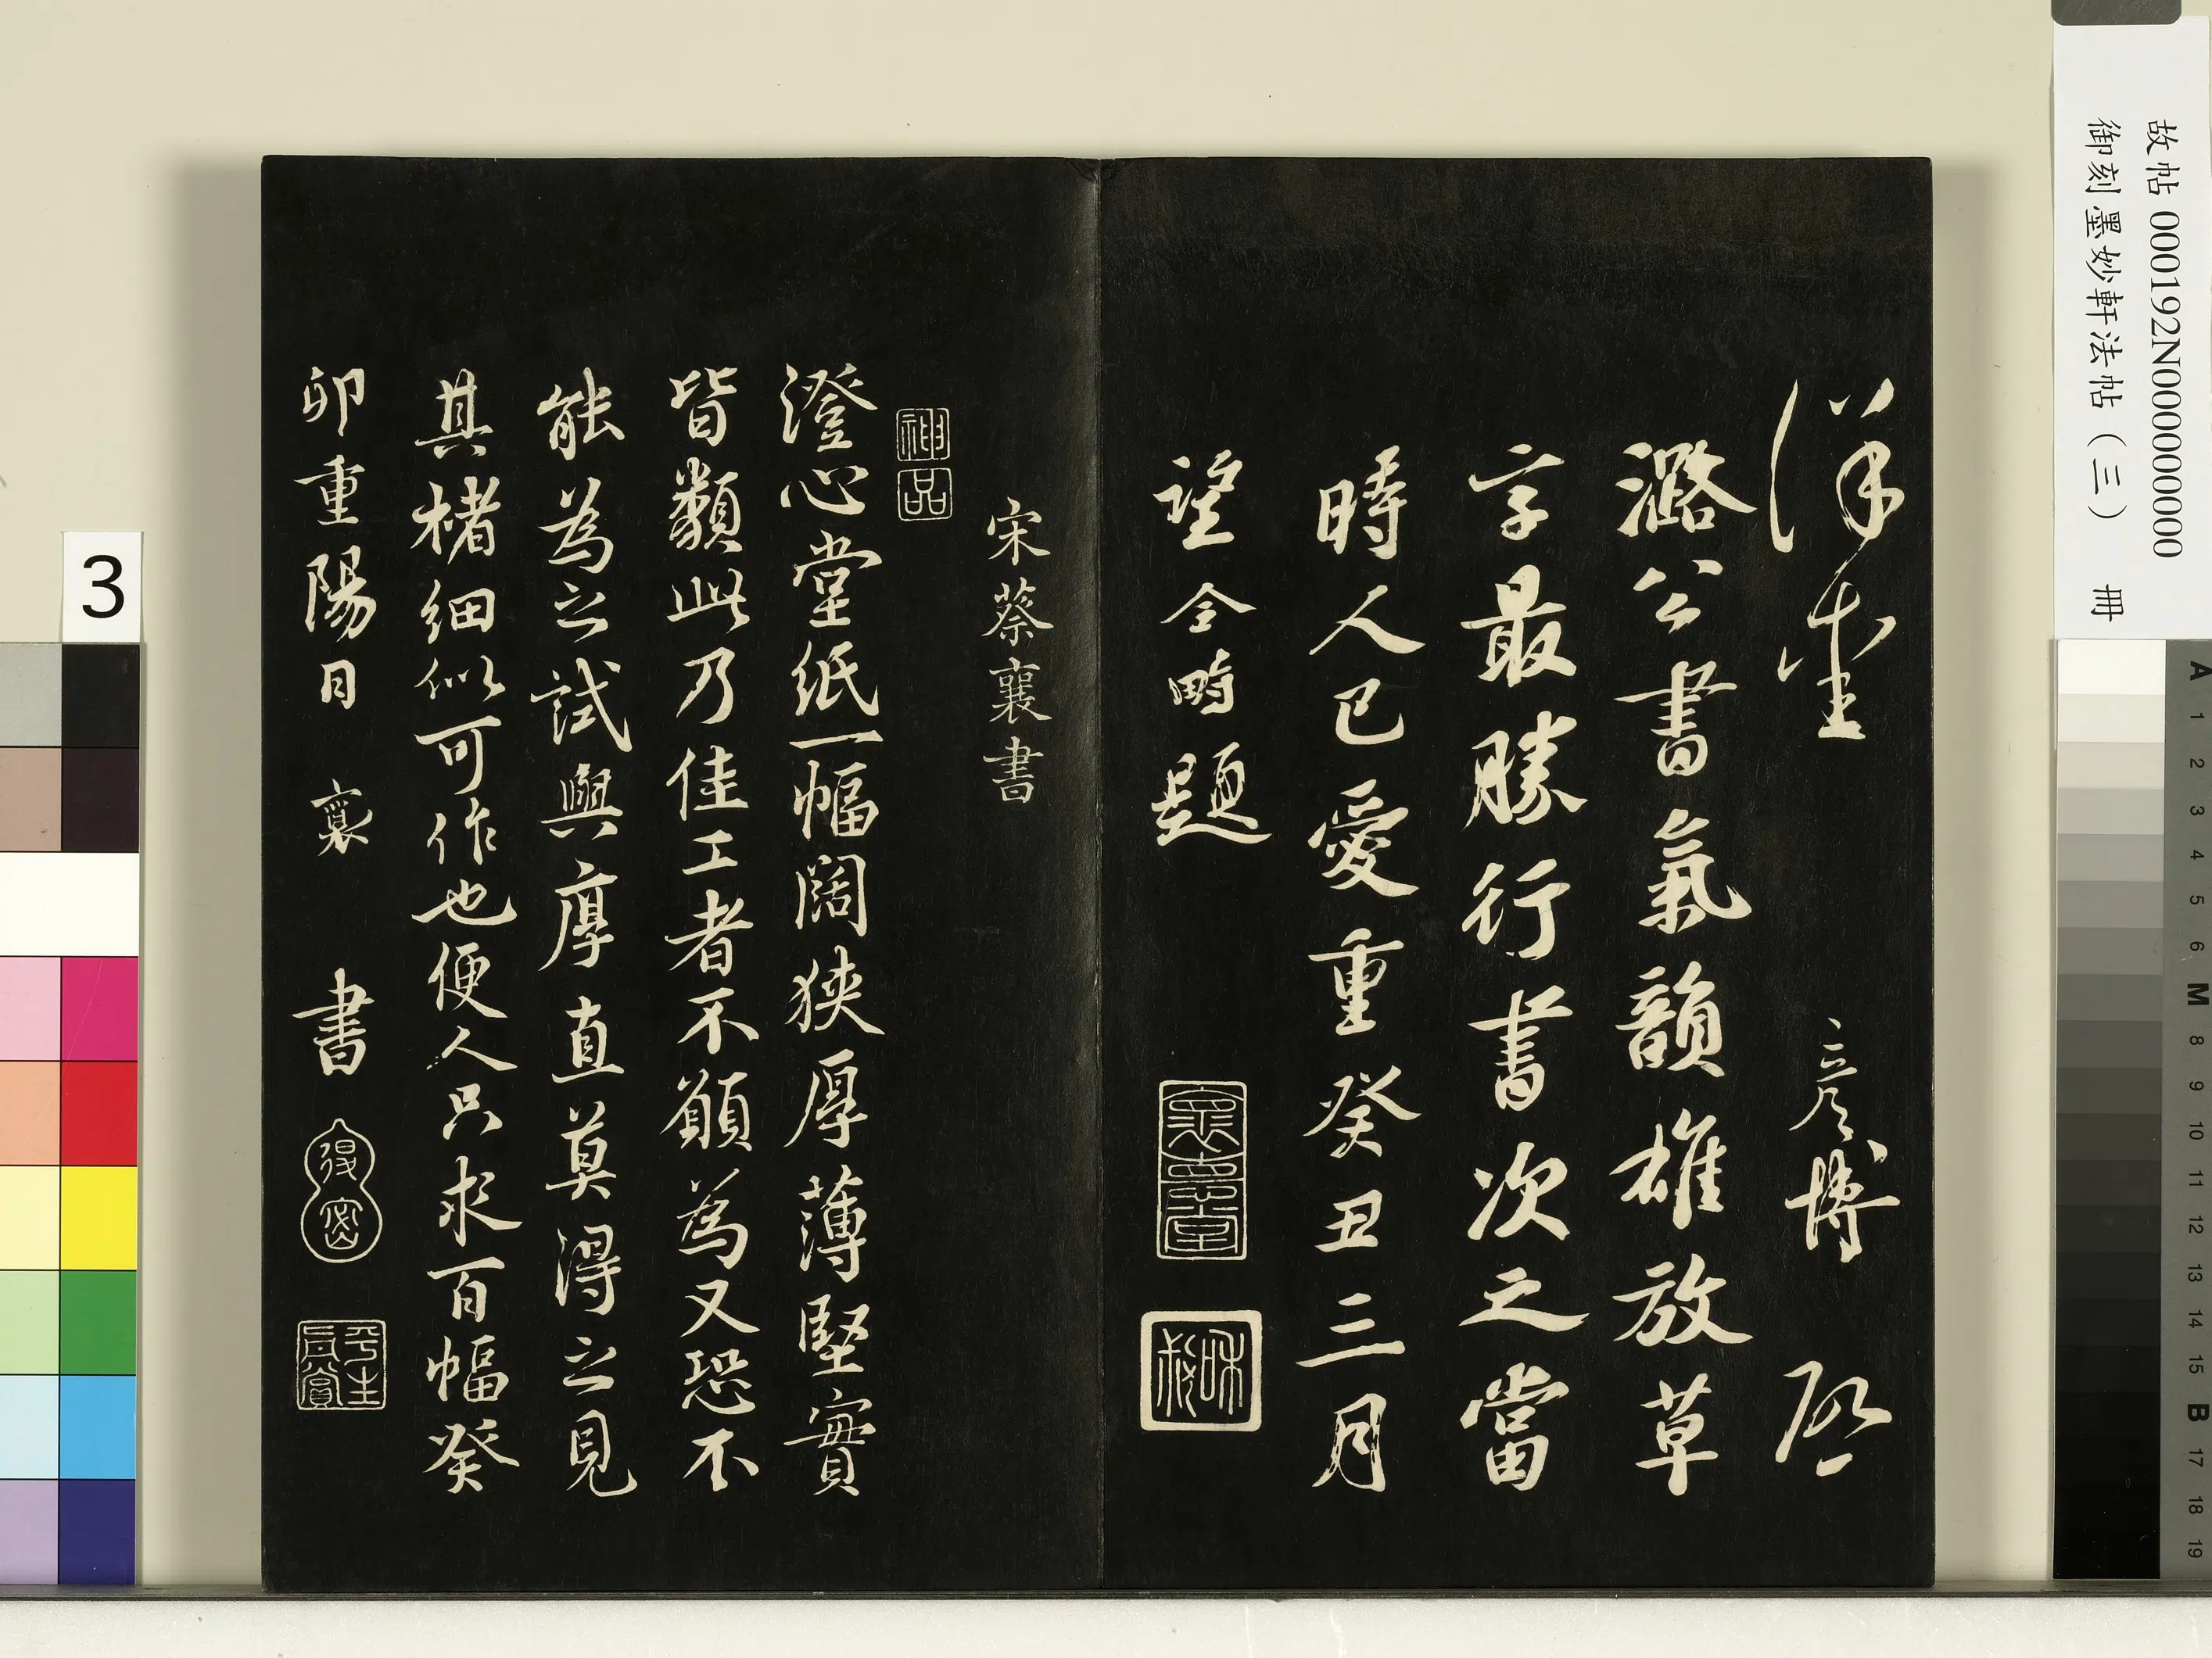 故帖 000192N000000000
御刻墨妙軒法帖（三） 冊
彥博
潞公書氣韻雄放草
字最勝行書次之當
時人已愛重癸丑三月
望令畤題
宋蔡襄書
神品
澄心堂紙一幅闊狹厚薄堅實
皆類此乃佳工者不願為又恐不
能為之試與厚直莫得之見
其楮細似可作也便人只求百幅癸
卯重陽日 襄 書
平生真賞
3
A 1 2 3 4 5 6 M 8 9 10 11 12 13 14 15 B 17 18 19